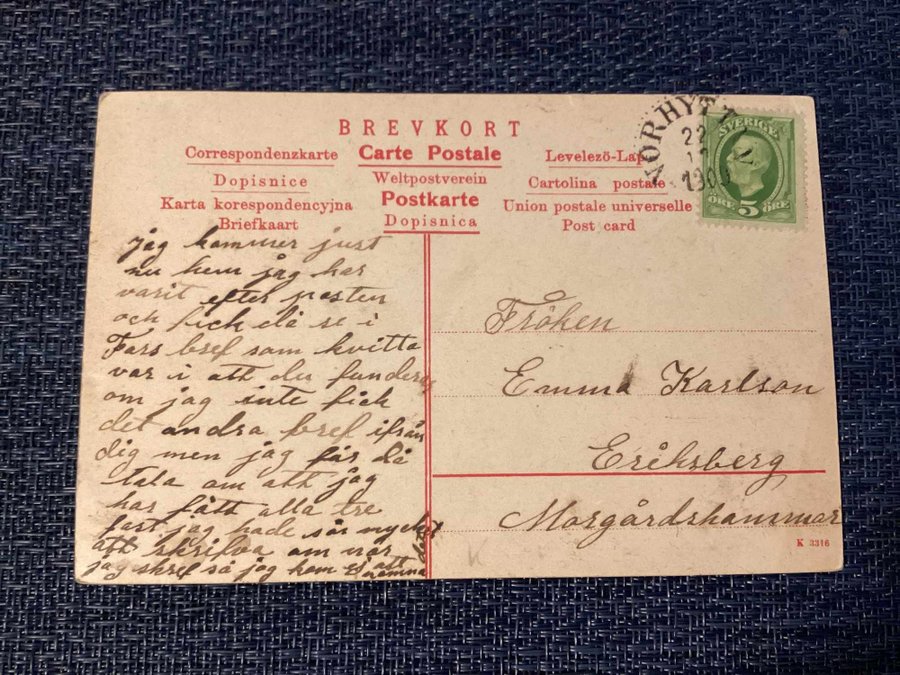 BREVKORT
Correspondenzkarte Carte Postale Levelezö-Lap
Dopisnice Weltpostverein Cartolina postale
Karta korespondencyjna Postkarte Union postale universelle
Briefkaart Dopisnica Post card
SVERIGE
ÖRE 5 ÖRE
22
jag kommer just
nu hem jag har
varit efter posten
och fick då se i
Fars bref som kvitto
var i att du fundera
om jag inte fick
det andra bref ifrån
dig men jag får då
tala om att jag
har fått alla tre
fast jag hade så mycket
att skrifva om när
jag skref så jag kom ej att nämna det
Fröken
Emma Karlson
Eriksberg
Morgårdshammar
K 3316